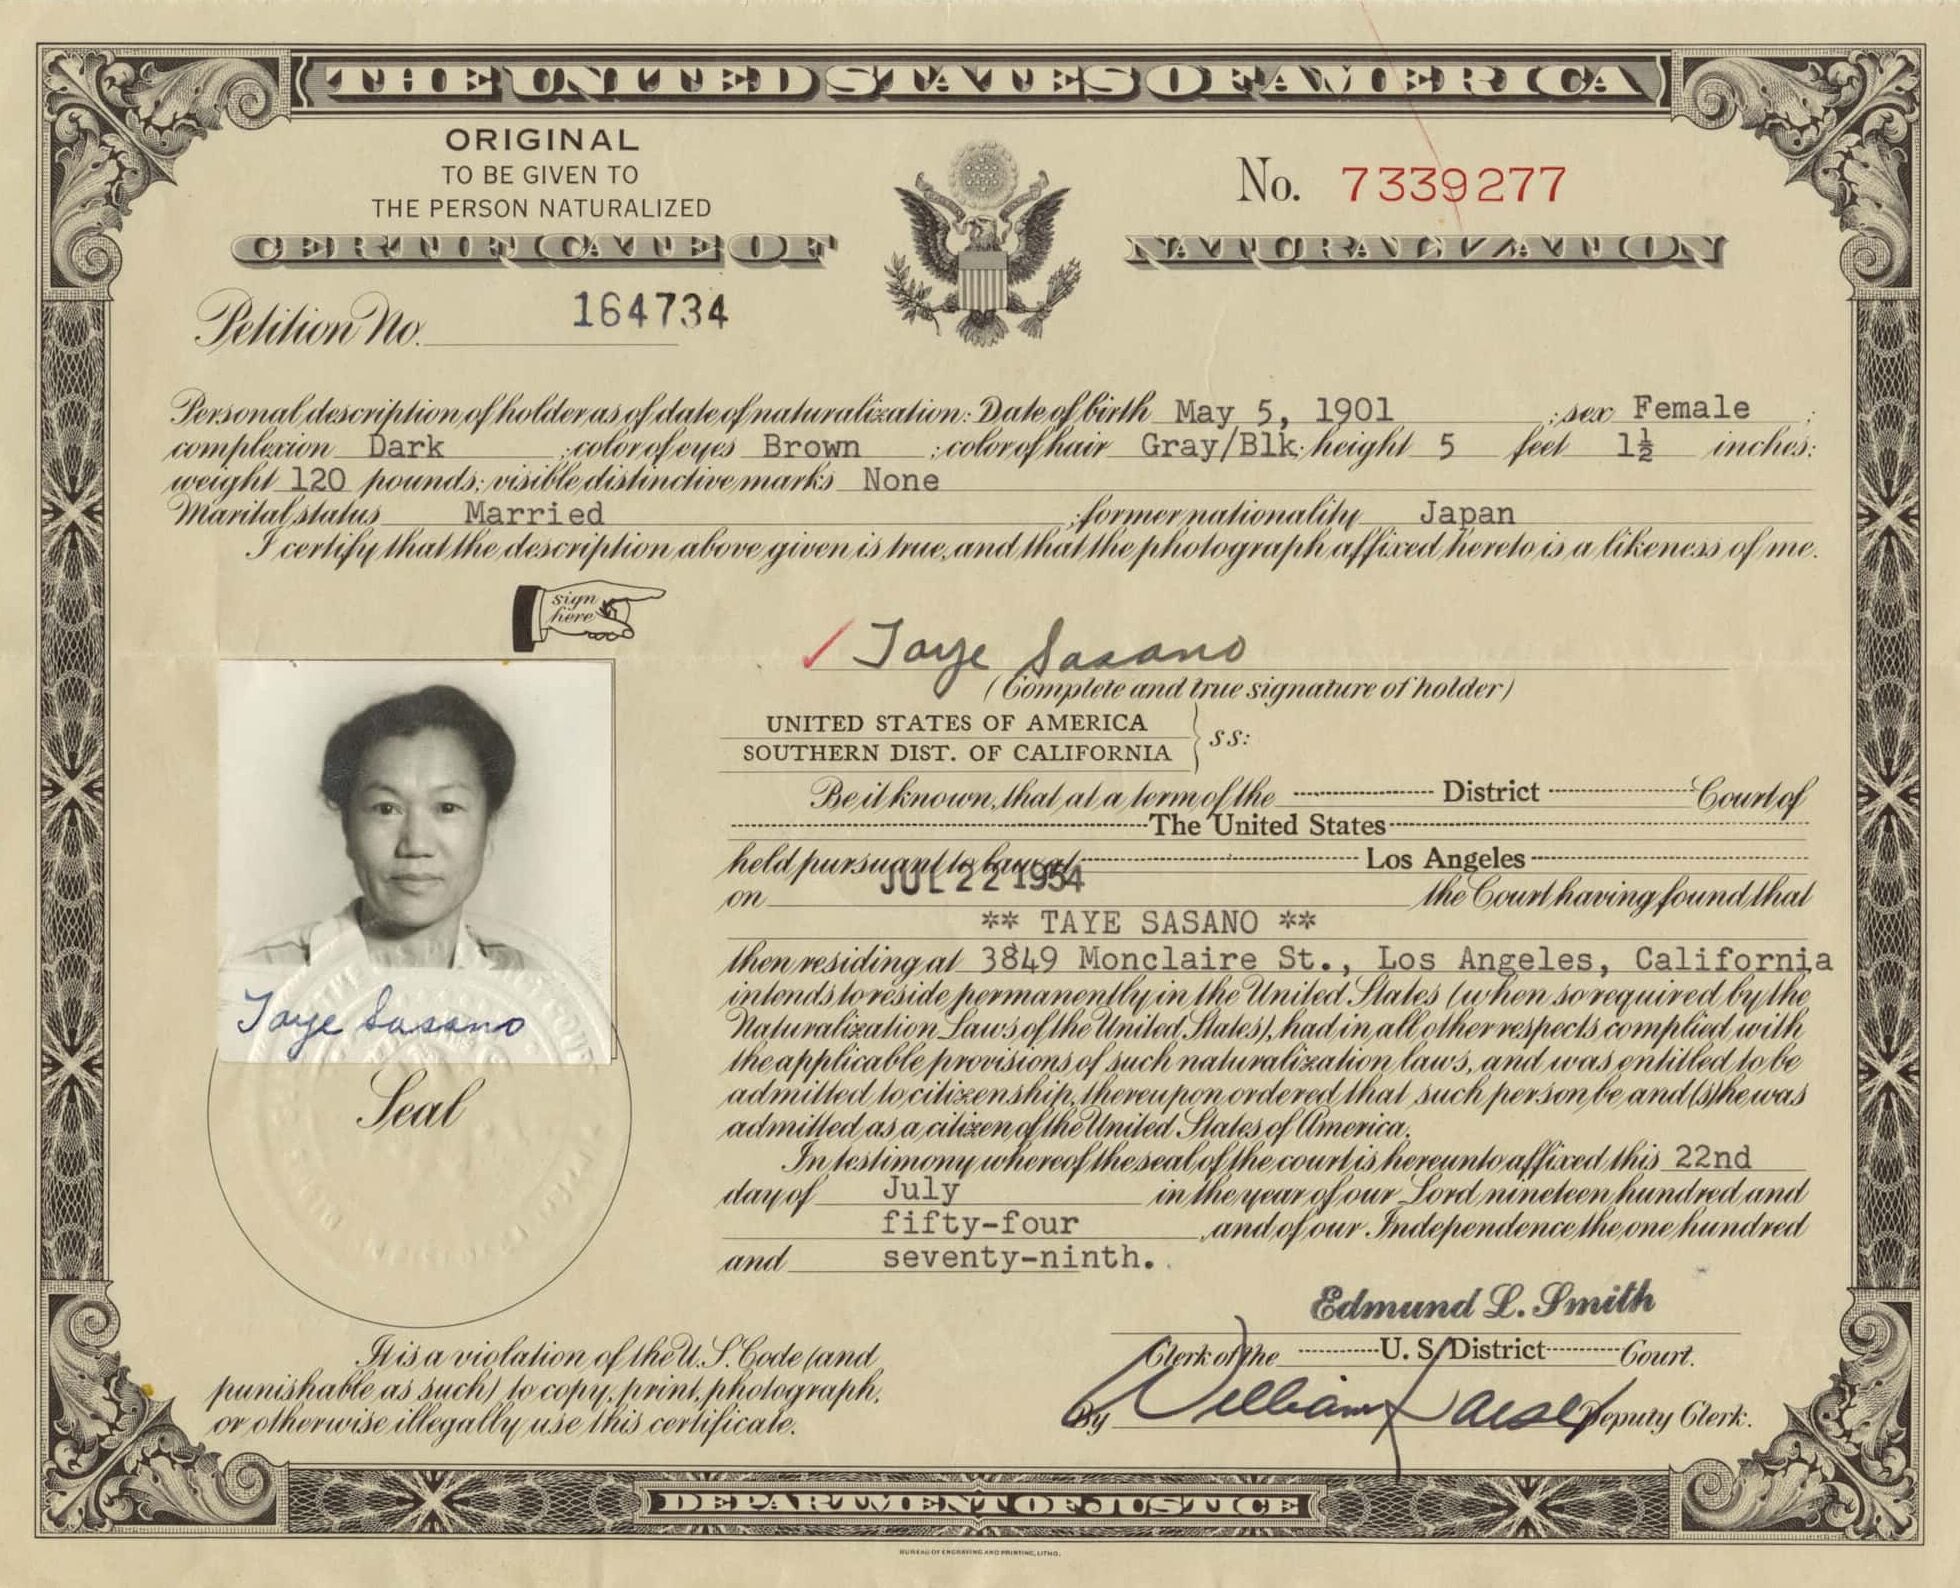 THE UNITED STATES OF AMERICA
ORIGINAL
TO BE GIVEN TO
THE PERSON NATURALIZED
No. 7339277
CERTIFICATE OF NATURALIZATION
Petition No. 164734
Personal description of holder as of date of naturalization: Date of birth May 5, 1901 ; sex Female ;
complexion Dark ; color of eyes Brown ; color of hair Gray/Blk ; height 5 feet 1½ inches;
weight 120 pounds; visible distinctive marks None
Marital status Married ; former nationality Japan
I certify that the description above given is true, and that the photograph affixed hereto is a likeness of me.
sign
here
Taye Sasano
(Complete and true signature of holder)
UNITED STATES OF AMERICA
SOUTHERN DIST. OF CALIFORNIA
ss:
Be it known, that at a term of the District Court of
The United States
held pursuant to law at Los Angeles
on JUL 22 1954 the Court having found that
** TAYE SASANO **
then residing at 3849 Monclaire St., Los Angeles, California
intends to reside permanently in the United States (when so required by the
Naturalization Laws of the United States), had in all other respects complied with
the applicable provisions of such naturalization laws, and was entitled to be
admitted to citizenship, thereupon ordered that such person be and (s)he was
admitted as a citizen of the United States of America.
In testimony whereof the seal of the court is hereunto affixed this 22nd
day of July in the year of our Lord nineteen hundred and
fifty-four , and of our Independence the one hundred
and seventy-ninth.
Taye Sasano
Seal
Edmund L. Smith
Clerk of the U. S. District Court.
By William Deputy Clerk.
It is a violation of the U. S. Code (and
punishable as such) to copy, print, photograph,
or otherwise illegally use this certificate.
DEPARTMENT OF JUSTICE
BUREAU OF ENGRAVING AND PRINTING, LITHO.